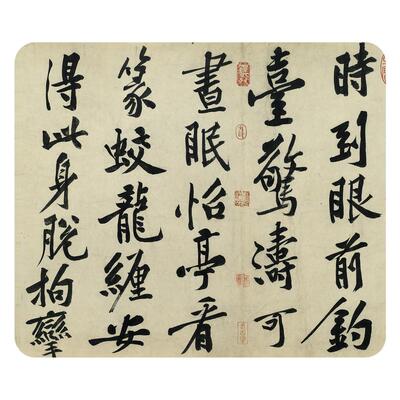 時到眼前釣
臺驚濤可
晝眠怡亭看
篆蛟龍纏安
得此身脫拘攣